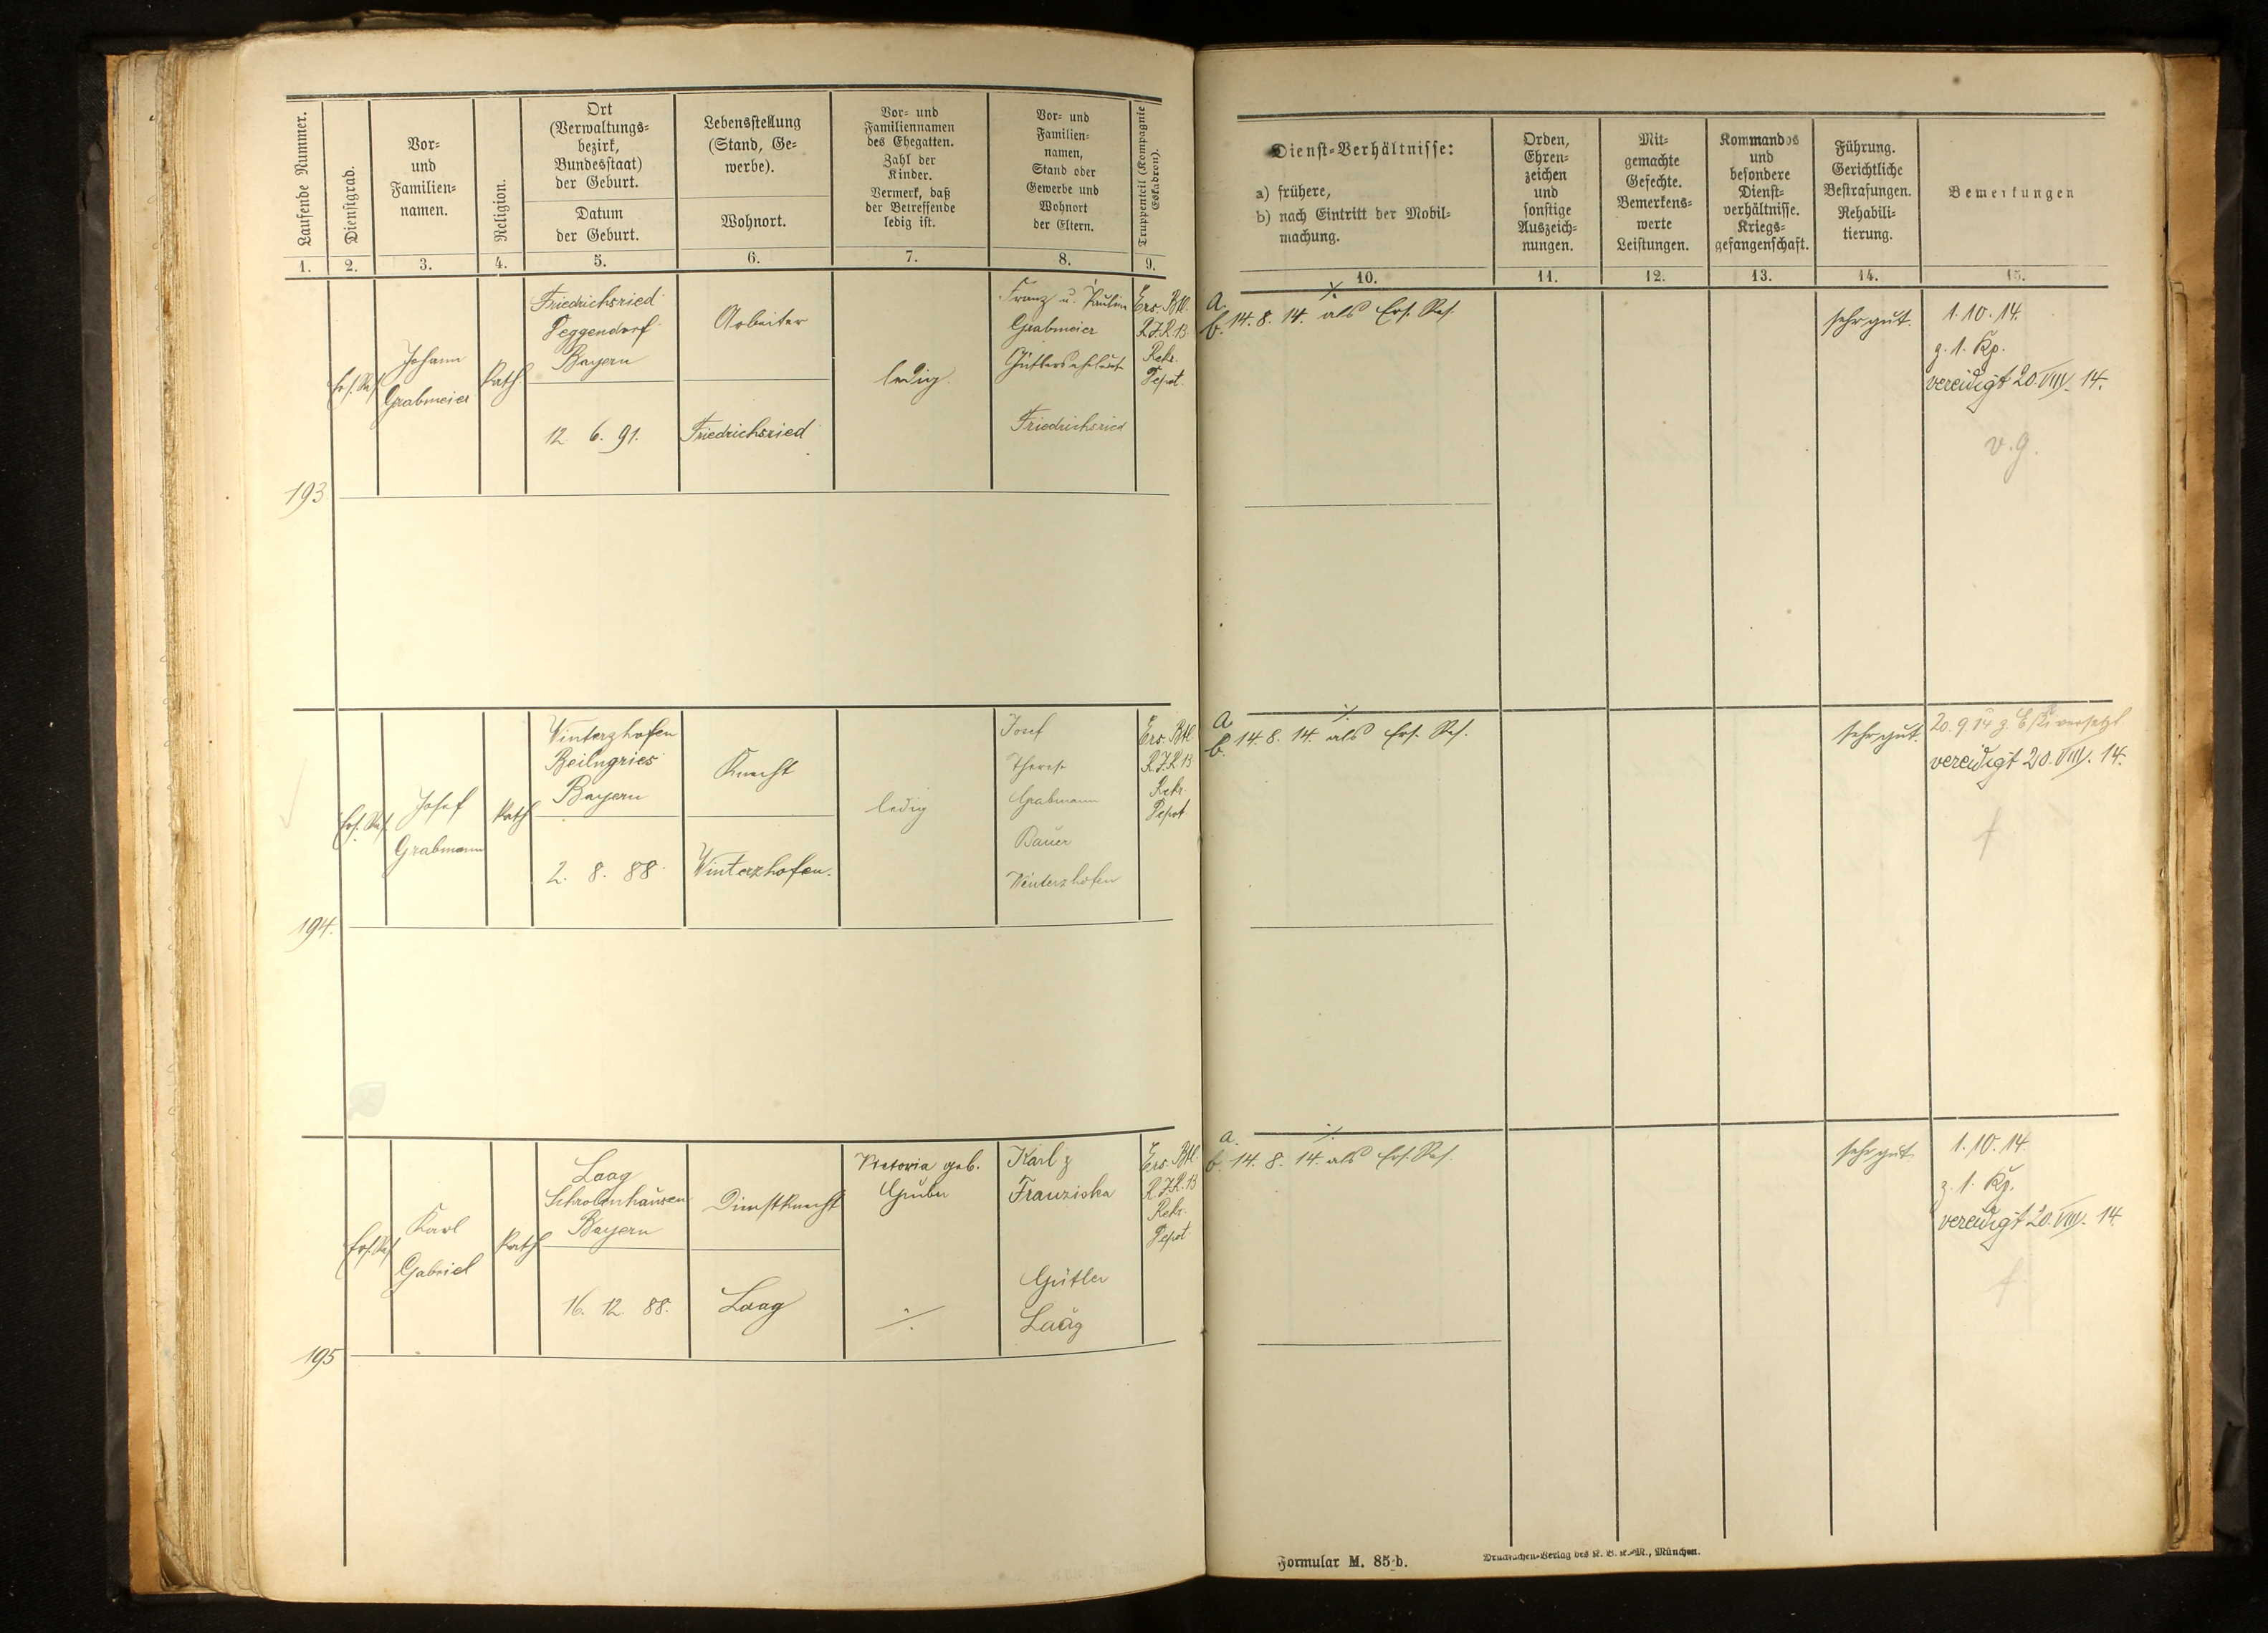 Laufende Nummer.
Dienstgrad.
Vor-
und
Familien-
namen.
Religion.
Ort
(Verwaltungs-
bezirk,
Bundesstaat)
der Geburt.
Datum
der Geburt.
Lebensstellung
(Stand, Ge-
werbe).
Wohnort.
Vor- und
Familiennamen
des Ehegatten.
Zahl der
Kinder.
Vermerk, daß
der Betreffende
ledig ist.
Vor- und
Familien-
namen,
Stand oder
Gewerbe und
Wohnort
der Eltern.
Truppenteil (Kompagnie
Eskadron).
Dienst-Verhältnisse:
a) frühere,
b) nach Eintritt der Mobil-
machung.
Orden,
Ehren-
zeichen
und
sonstige
Auszeich-
nungen.
Mit-
gemachte
Gefechte.
Bemerkens-
werte
Leistungen.
Kommandos
und
besondere
Dienst-
verhältnisse.
Kriegs-
gefangenschaft.
Führung.
Gerichtliche
Bestrafungen.
Rehabili-
tierung.
Bemerkungen
1. 2. 3. 4. 5. 6. 7. 8. 9. 10. 11. 12. 13. 14. 15.
193
Ers. Res.
Johann
Grabmeier
Kath.
Friedrichsried
Deggendorf
Bayern
12. 6. 91.
Arbeiter
Friedrichsried
ledig.
Franz u.
Grabmeier
Friedrichsried
Ers. Btl.
R.I.R. 13
Rekr.
Depot.
a. ⁒
b. 14. 8. 14. als Ers. Res.
sehr gut.
1. 10. 14.
z. 1. Kp.
vereidigt 20. VIII. 14.
v. g.
194.
Ers. Res.
Josef
Grabmann
Kath
Winterzhofen
Beilngries
Bayern
2. 8. 88.
Knecht
Winterzhofen.
ledig
Josef
Therese
Grabmann
Bauer
Winterzhofen
Ers. Btl.
R.I.R. 13
Rekr.
Depot
a. ⁒
b. 14. 8. 14. als Ers. Res.
sehr gut.
20. 9. 14 z. versetzt
vereidigt 20. VIII. 14.
f
195
Ers. Res.
Karl
Gabriel
Kath
Laag
Schrobenhausen
Bayern
16. 12. 88.
Dienstknecht
Laag
Victoria geb.
Gruber
⁒
Karl
Franziska
Gütler
Laag
Ers. Btl.
R.I.R. 13
Rekr.
Depot.
a. ⁒
b. 14. 8. 14. als Ers. Res.
sehr gut.
1. 10. 14.
z. 1. Kp.
vereidigt 20. VIII. 14.
f
Formular M. 85 b.
Drucksachen-Verlag des K. B. K.-M., München.